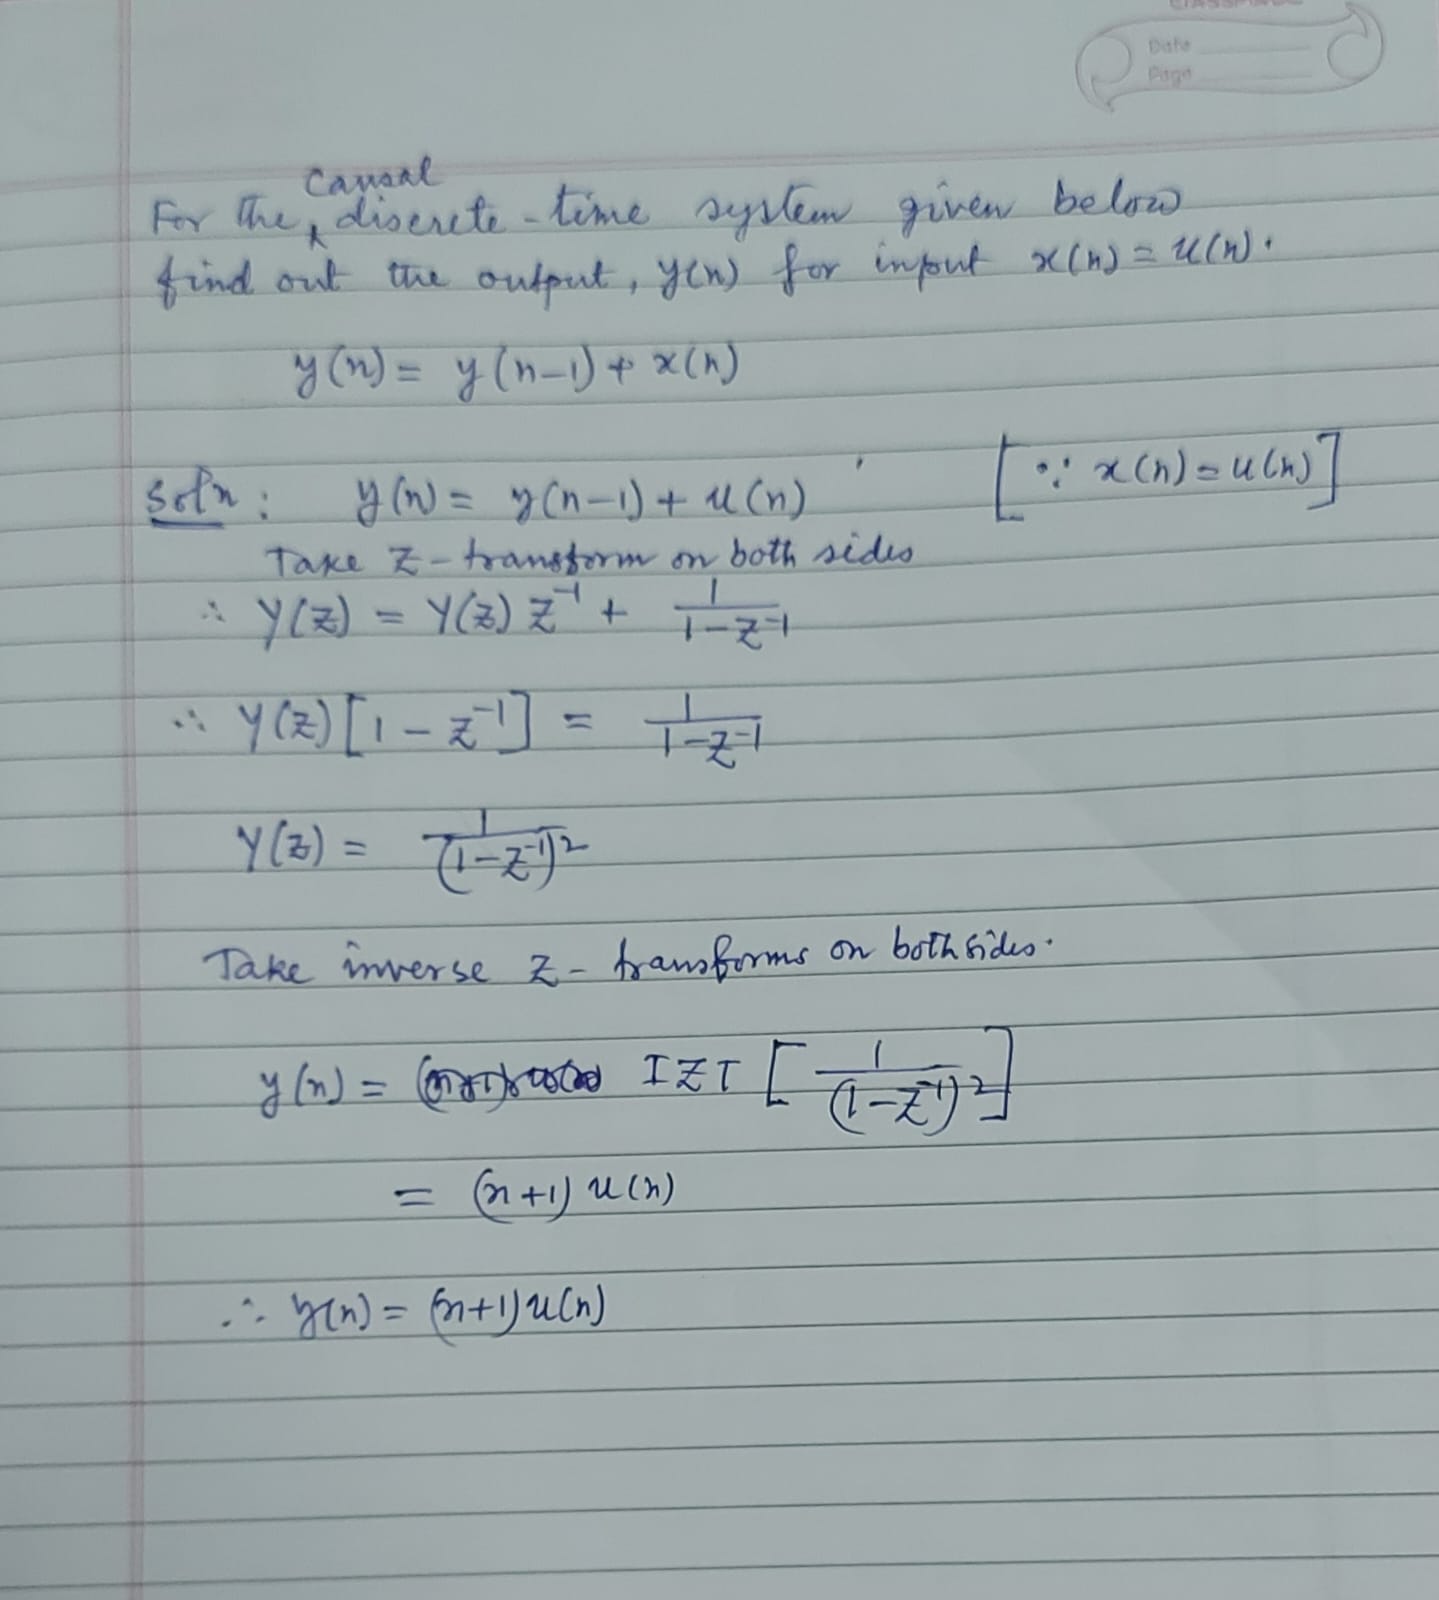 Date
Page
Causal
For the discrete-time system given below
find out the output, y(n) for input x(n) = u(n).
y(n) = y(n-1) + x(n)
Soln: y(n) = y(n-1) + u(n) [∵ x(n) = u(n)]
Take Z-transform on both sides
∴ Y(z) = Y(z) z⁻¹ + 1/(1-z⁻¹)
∴ Y(z)[1 - z⁻¹] = 1/(1-z⁻¹)
Y(z) = 1/(1-z⁻¹)²
Take inverse z-transforms on both sides.
y(n) = IZT [1/(1-z⁻¹)²]
= (n+1) u(n)
∴ y(n) = (n+1) u(n)